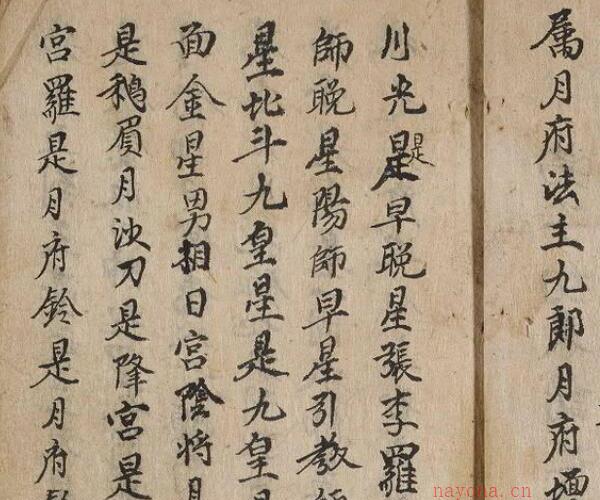 属月府法主九郎月府
川光是是早晚星張李羅
師晚星陽師早星引教師
星北斗九皇星是九皇星
面金星男相日宮陰將月
是鵝眉月沙刀是降宮是
宮羅是月府鈴是月府
nayona.cn